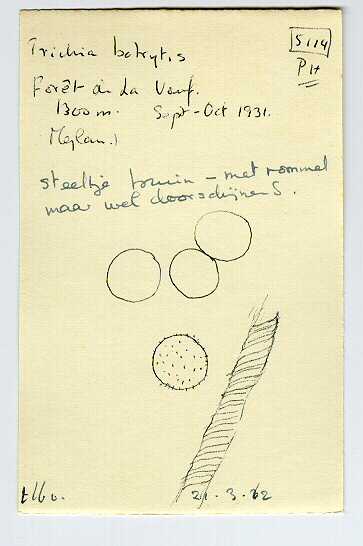 Trichia botrytis
5119
PH
Forêt de La
1300 m. Sept-Oct 1931.
Meylan.
steeltje bruin - met rommel
maar wel doorschijnend.
21.3.62